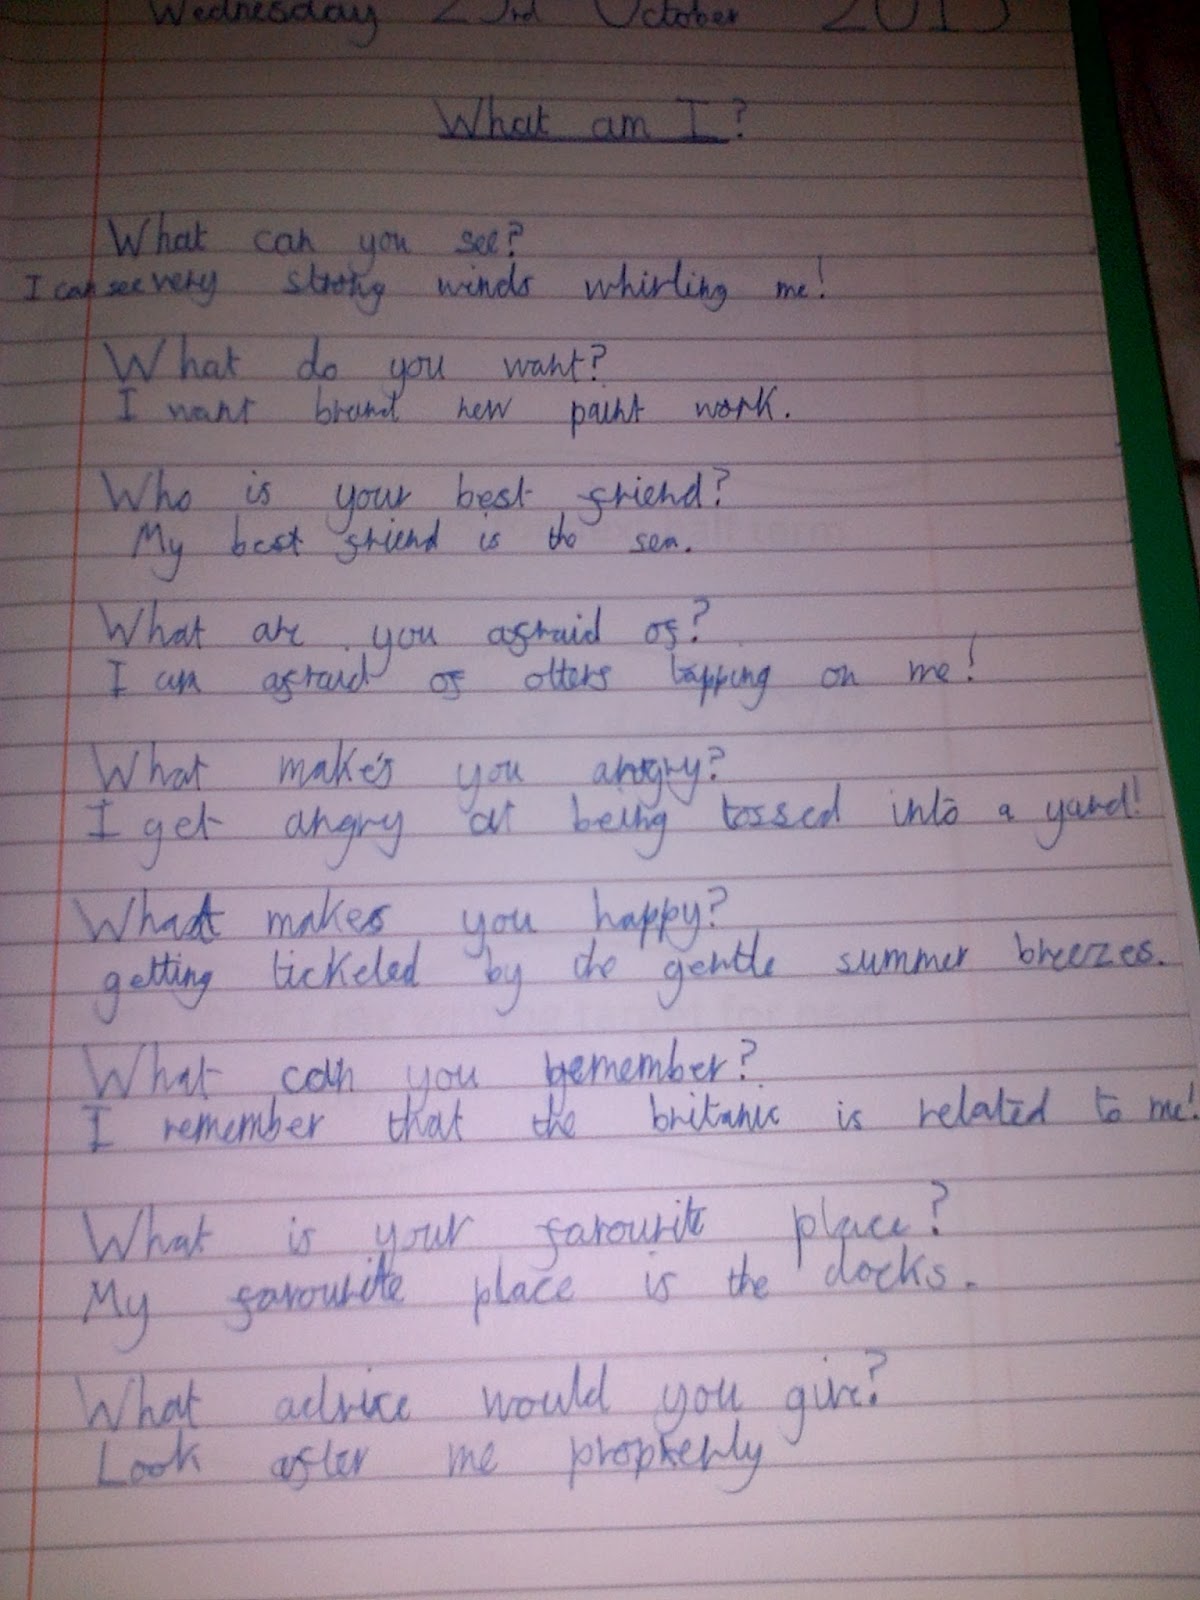 Wednesday 23rd October 2013
What am I?
What can you see?
I can see very strong winds whirling me!
What do you want?
I want brand new paint work.
Who is your best friend?
My best friend is the sea.
What are you afraid of?
I am afraid of otters tapping on me!
What makes you angry?
I get angry at being tossed into a yard!
What makes you happy?
getting tickeled by the gentle summer breezes.
What can you remember?
I remember that the britanic is related to me!
What is your favourite place?
My favourite place is the docks.
What advice would you give?
Look after me properly